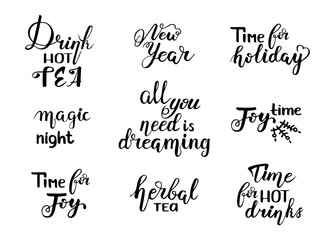 Drink
HOT
TEA
New
Year
Time for
holiday
magic
night
all
you
need is
dreaming
Joy time
Time for
Joy
herbal
TEA
Time
for HOT
drinks